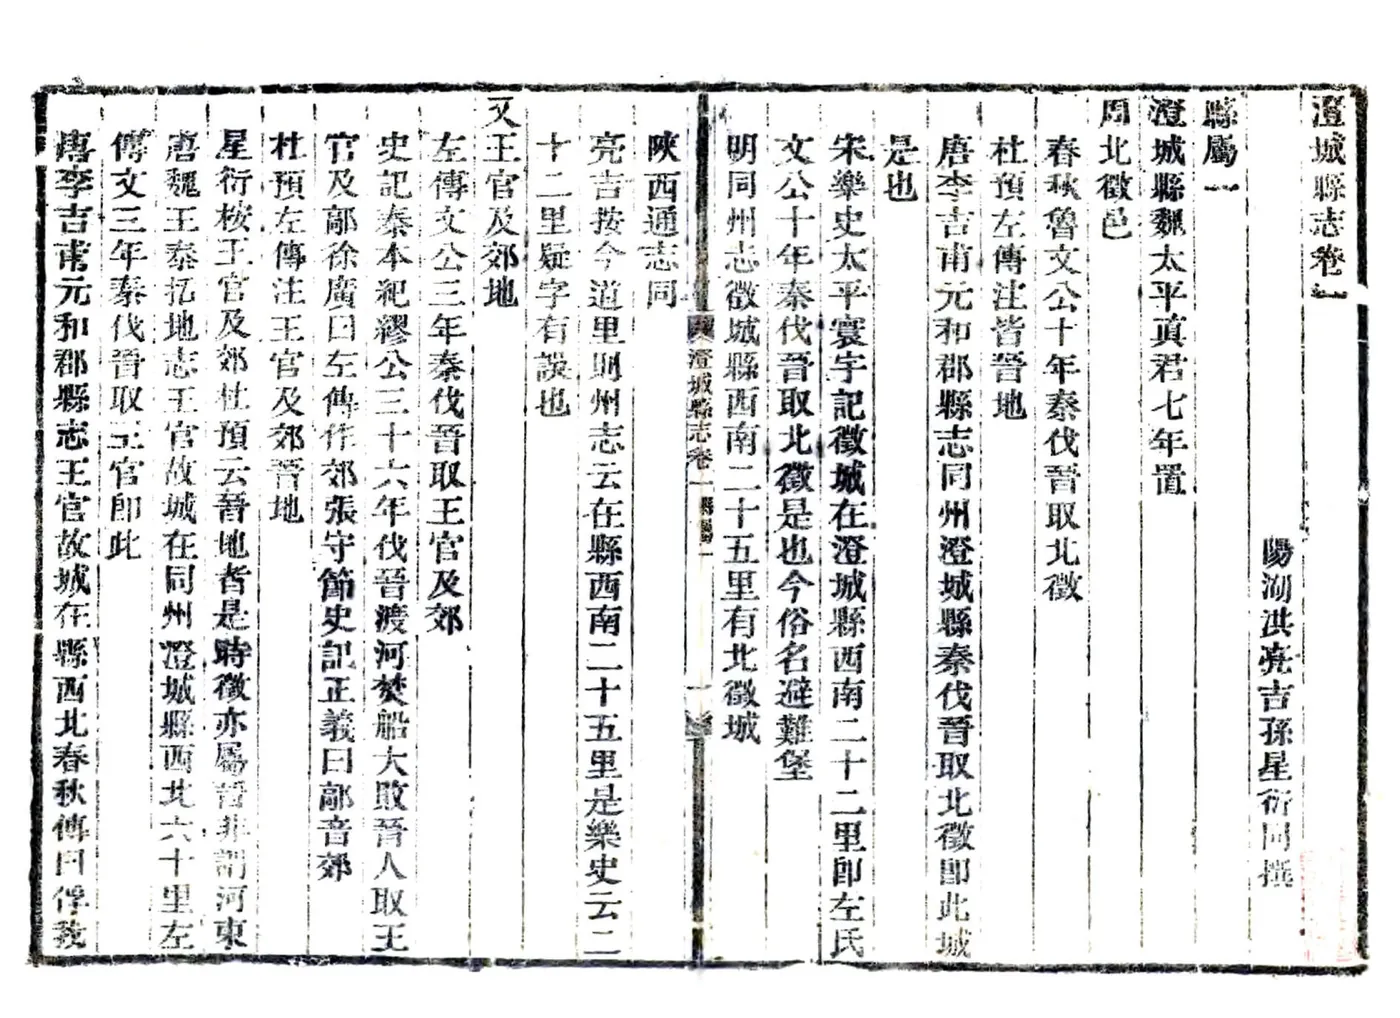 澄城縣志卷一
陽湖洪亮吉孫星衍同撰
縣屬一
澄城縣魏太平真君七年置
周北徵邑
春秋魯文公十年秦伐晉取北徵
杜預左傳注皆晉地
唐李吉甫元和郡縣志同州澄城縣秦伐晉取北徵卽此城
是也
宋樂史太平寰宇記徵城在澄城縣西南二十二里卽左氏
文公十年秦伐晉取北徵是也今俗名避難堡
明同州志徵城縣西南二十五里有北徵城
澄城縣志卷一 縣屬一
一
陝西通志同
亮吉按今道里則州志云在縣西南二十五里是樂史云二
十二里疑字有誤也
又王官及郊地
左傳文公三年秦伐晉取王官及郊
史記秦本紀繆公三十六年伐晉渡河焚船大敗晉人取王
官及鄗徐廣曰左傳作郊張守節史記正義曰鄗音郊
杜預左傳注王官及郊晉地
星衍按王官及郊杜預云晉地者是時徵亦屬晉非謂河東
唐魏王泰括地志王官故城在同州澄城縣西北六十里左
傳文三年秦伐晉取王官卽此
唐李吉甫元和郡縣志王官故城在縣西北春秋傳曰俘我